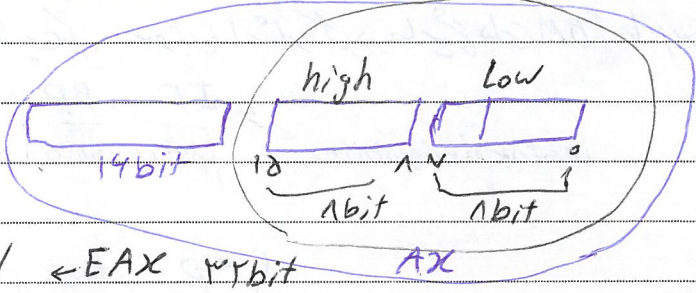 high Low
۱۶bit ۱۵ ۸ ۷ ۰
۸bit ۸bit
← EAX ۳۲bit AX